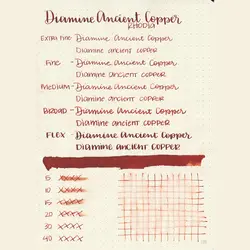 Diamine Ancient Copper
RHODIA
EXTRA FINE - Diamine Ancient Copper
DIAMINE ANCIENT COPPER
FINE - Diamine Ancient Copper
DIAMINE ANCIENT COPPER
MEDIUM - Diamine Ancient Copper
DIAMINE ANCIENT COPPER
BROAD - Diamine Ancient Copper
DIAMINE ANCIENT COPPER
FLEX - Diamine Ancient Copper
DIAMINE ANCIENT COPPER
5 xxxx
10 xxxx
15 xxxx
20 xxxx
30 xxxx
40 xxxx